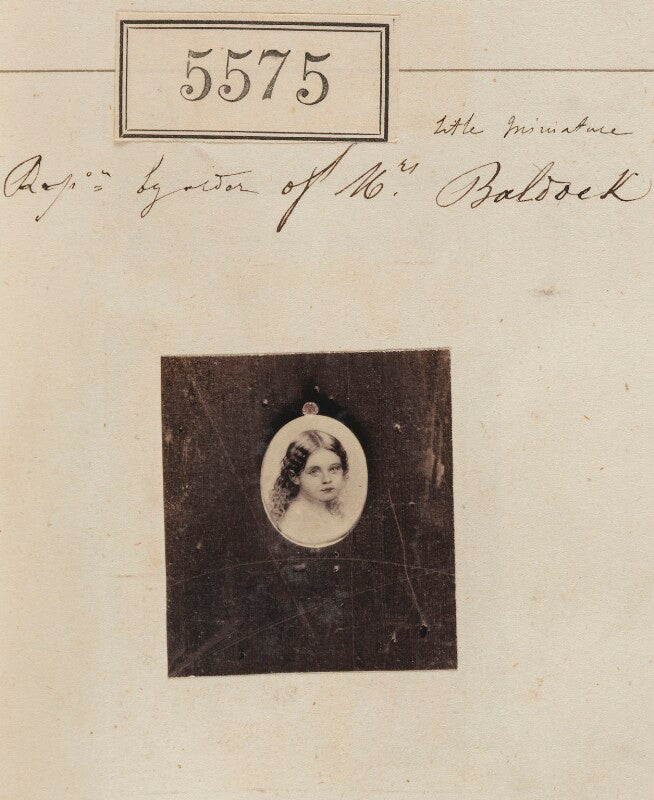 5575
little Miniature
Rep:ⁿ by order of Mʳˢ. Baldock